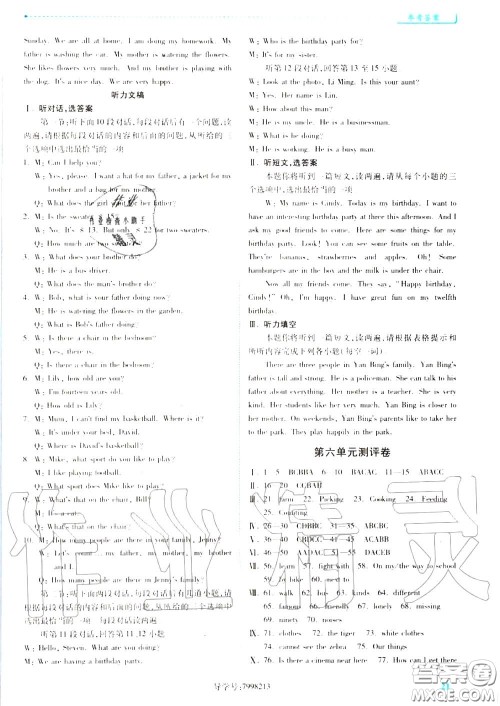 Sunday. We are all at home. I am doing my homework. My
father is washing the car. My mother is watering the flowers.
She likes flowers very much. And my brother is playing with
the dog. It's a nice dog. We are very happy.
听力文稿
Ⅰ. 听对话,选答案
第一节:听下面10段对话,每段对话后有一个问题,读
两遍,请根据每段对话的内容和后面的问题,从所给的三
个选项中选出最恰当的一项
1. M: Can I help you?
W: Yes, please. I want a hat for my father, a jacket for
my brother and a bag for my mother.
2. M: Is the sweater
W: No. It's 13. But only 22 for two sweaters.
Q: How much are two sweaters?
3. W: What does your brother do?
M: He is a bus driver.
Q: What does the man's brother do?
4. W: Bob, what is your father doing now?
M: He is watering the flowers in the garden.
Q: What is Bob's father doing?
5. W: Is there a chair in the bedroom?
M: Yes, there is.
Q: Is there a chair in the bedroom?
6. M: Lily, how old are you?
W: I'm fourteen years old.
Q: How old is Lily?
7. W: Mum, I can't find my basketball. Where is it?
W: It's under your bed, David.
Q: Where is David's basketball?
8. W: Mike, what sport do you like to play?
M: I like playing football.
Q: What sport does Mike like to play?
9. W: What's that on the chair, Bill?
M: It's a cat.
Q: What is on the chair?
10. M: How many people are there in your family, Jenny?
W: Let's count... my father, my mother, my brother
and I.
Q: How many people are there in Jenny's family?
第二节:听下面几段对话,每段对话后有几道小题,请
根据每段对话的内容和后面的问题,从所给的三个选项中
选出最恰当的一项。每段对话读两遍
听第11段对话,回答第11、12小题
W: Hello, Steven. What are you doing?
M: We are having a birthday party.
W: Who is the birthday party for?
M: It's for my sister.
听第12段对话,回答第13至15小题
W: Look at the photo, Li Ming. Is this your aunt?
M: Yes. Her name is Lin.
W: How old is she?
M: She is
W: What does she do?
M: She is
Ⅱ. 听短文,选答案
本题你将听到一篇短文,读两遍,请从每个小题的三
个选项中,选出最恰当的一项
W: My name is Candy. Today is my birthday. I want to
have an interesting birthday party at three this afternoon. And I
ask my good friends to come. Here are some things for my
birthday. Look! You can see some fruits on the table.
They're bananas, strawberries and apples. Oh! Some
hamburgers are in the box and the milk is under the chair.
Now all my friends come. They say, "Happy birthday,
Cindy!" Oh, I'm happy. I have great fun on my twelfth
birthday.
Ⅲ. 听力填空
本题你将听到一篇短文,读两遍,请根据表格提示和
所听内容完成下列各小题(每空一词)
There are three people in Yan Bing's family. Yan Bing's
father is tall and strong. He is a policeman. She can talk to his
father about everything. Her mother is a teacher. She is very
kind. Her students like her very much. Yan Bing is closer to
her mother. On weekends, Yan Bing's parents have a rest at
home. They play happily in the park.
第六单元测评卷
Ⅰ. 1—5 BCBBA 6—10 BACAC 11—15 ABACC
Ⅱ. 16—20 CCBAB
Ⅲ. 21. farm 22. Packing 23. Cooking 24. Feeding
25. Counting
Ⅳ. 26—30 CDBBC 31—35 ABACB
36—40 CBDCC 41—45 ABACB
Ⅴ. 46—50 AADAC 51—55 DACEB
Ⅵ. 56. learn 57. different 58. friendly 59. going
60. to bike 61. next to
Ⅶ. 62. but 63. other 64. with 65. and
66. famous 67. friends 68. following
69. ninety 70. nurses
Ⅷ. 71. clothes 72. the 73. to 74. to
75. talking
Ⅸ. 76. Is there a cinema near here 77. How far is it
导学号:7998213